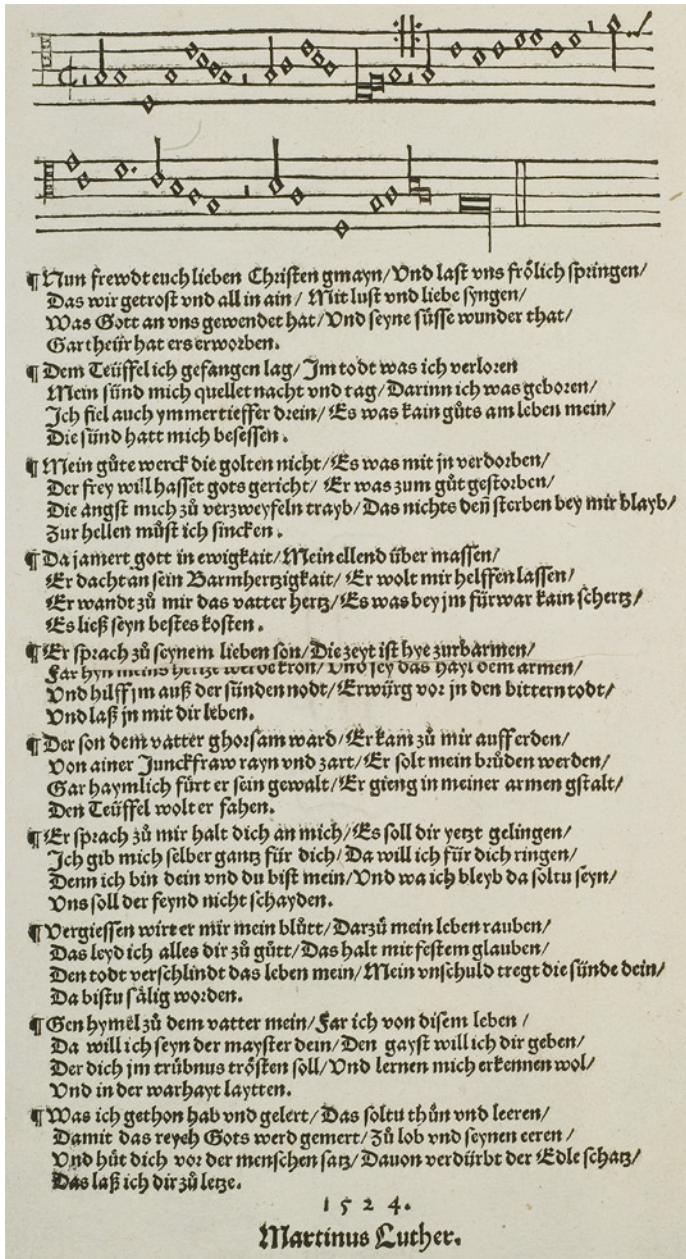 ¶ Nun frewdt euch lieben Christen gmayn/ Vnd last vns frölich springen/
Das wir getrost vnd all in ain/ Mit lust vnd liebe syngen/
Was Gott an vns gewendet hat/ Vnd seyne süsse wunder that/
Gar theür hat ers erworben.
¶ Dem Teüffel ich gefangen lag/ Im todt was ich verloren
Mein sünd mich quellet nacht vnd tag/ Darinn ich was geboren/
Ich fiel auch ymmer tieffer drein/ Es was kain gůts am leben mein/
Die sünd hatt mich besessen.
¶ Mein gůte werck die golten nicht/ Es was mit jn verdorben/
Der frey will hasset gots gericht/ Er was zum gůt gestorben/
Die angst mich zů verzweyfeln trayb/ Das nichts deñ sterben bey mir blayb/
Zur hellen můst ich sincken.
¶ Da jamert gott in ewigkait/ Mein ellend über massen/
Er dacht an sein Barmhertzigkait/ Er wolt mir helffen lassen/
Er wandt zů mir das vatter hertz/ Es was bey jm fürwar kain schertz/
Es ließ seyn bestes kosten.
¶ Er sprach zů seynem lieben son/ Die zeyt ist hye zurbarmen/
Far hyn meins hertze werde kron/ Vnd sey das hayl dem armen/
Vnd hilff jm auß der sünden nodt/ Erwürg vor jn den bittern todt/
Vnd laß jn mit dir leben.
¶ Der son dem vatter ghorsam ward/ Er kam zů mir auff erden/
Von ainer Junckfraw rayn vnd zart/ Er solt mein brůder werden/
Gar haymlich fürt er sein gewalt/ Er gieng in meiner armen gstalt/
Den Teüffel wolt er fahen.
¶ Er sprach zů mir halt dich an mich/ Es soll dir yetzt gelingen/
Ich gib mich selber gantz für dich/ Da will ich für dich ringen/
Denn ich bin dein vnd du bist mein/ Vnd wa ich bleyb da soltu seyn/
Vns soll der feynd nicht schayden.
¶ Vergiessen wirt er mir mein blůtt/ Darzů mein leben rauben/
Das leyd ich alles dir zů gůtt/ Das halt mit festem glauben/
Den todt verschlindt das leben mein/ Mein vnschuld tregt die sünde dein/
Da bistu sälig worden.
¶ Gen hymel zů dem vatter mein/ Far ich von disem leben/
Da will ich seyn der mayster dein/ Den gayst will ich dir geben/
Der dich jm trübnus trösten soll/ Vnd lernen mich erkennen wol/
Vnd in der warhayt laytten.
¶ Was ich gethon hab vnd gelert/ Das soltu thůn vnd leeren/
Damit das reych Gots werd gemert/ Zů lob vnd seynen eeren/
Vnd hüt dich vor der menschen satz/ Dauon verdürbt der Edle schatz/
Das laß ich dir zů letze.
1524.
Martinus Luther.